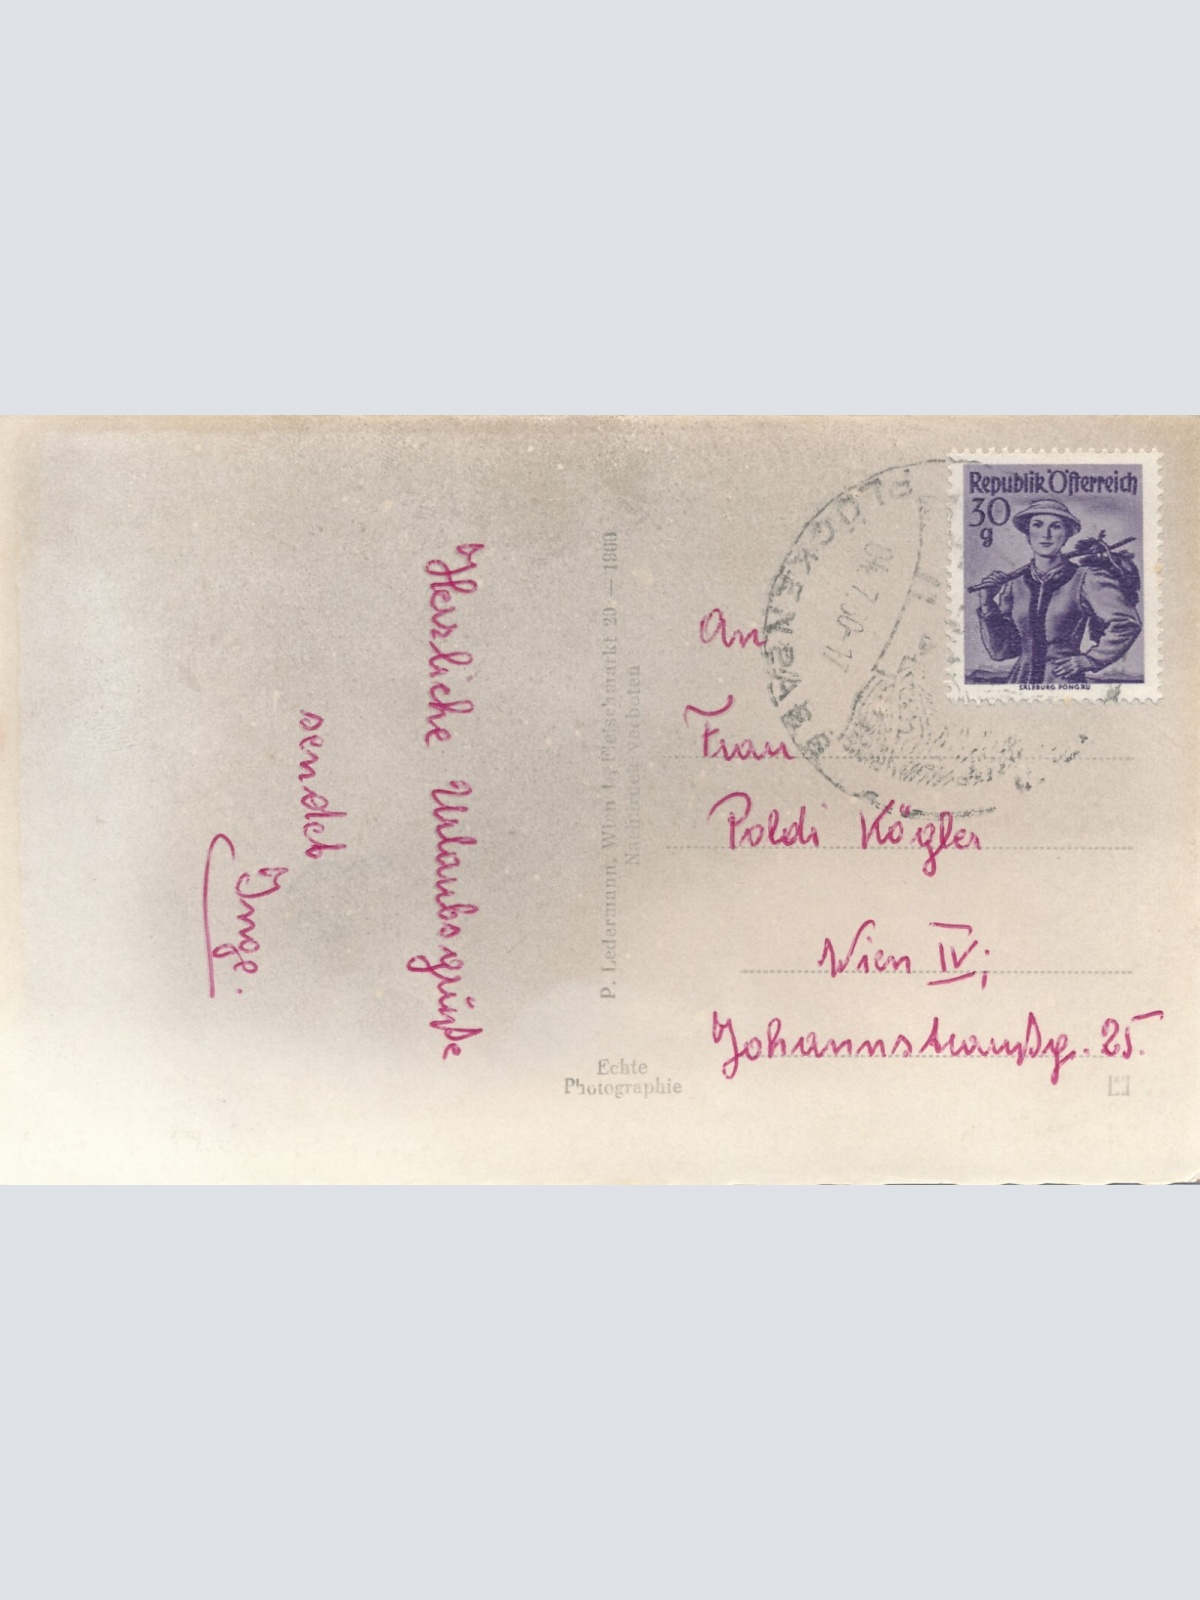 Herzliche Urlaubsgrüße
sendet
Inge.
P. Ledermann, Wien I., Fleischmarkt 20 — 1960
Echte
Photographie
Republik Österreich
30
g
SALZBURG PONGAU
An
Frau
Poldi Kögler
Wien IV;
Johannstraußg. 25.